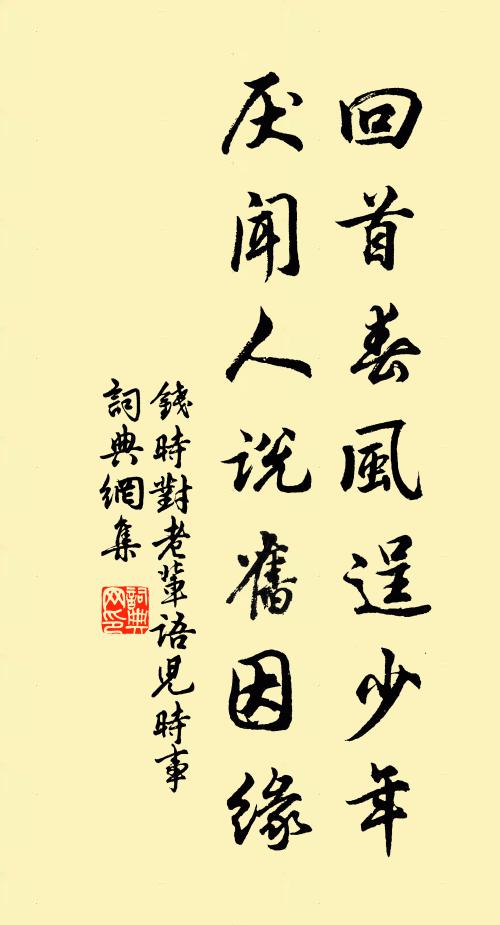 回首春風逞少年
厌聞人説舊因緣
錢時對老輩語兒時事
詞典網集
詞典
网印